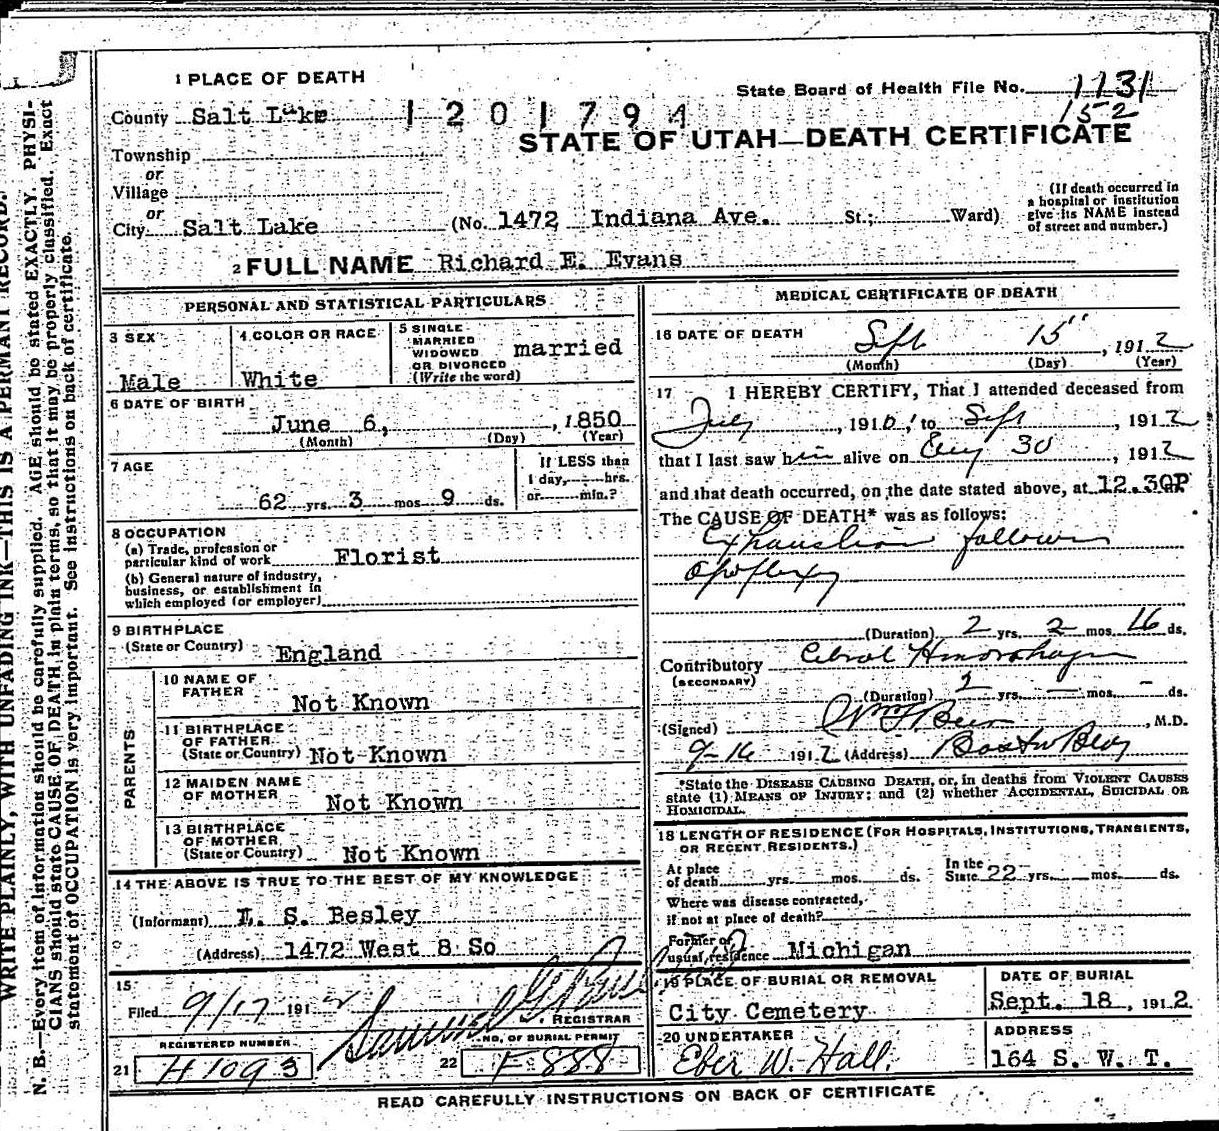 1 PLACE OF DEATH
State Board of Health File No. 1131
152
County Salt Lake
1201794
STATE OF UTAH—DEATH CERTIFICATE
Township
or
Village
or
City Salt Lake (No. 1472 Indiana Ave. St.; Ward)
(If death occurred in
a hospital or institution
give its NAME instead
of street and number.)
2 FULL NAME Richard E. Evans
PERSONAL AND STATISTICAL PARTICULARS
3 SEX
Male
4 COLOR OR RACE
White
5 SINGLE
MARRIED
WIDOWED
OR DIVORCED
(Write the word)
married
6 DATE OF BIRTH
June 6, , 1850
(Month) (Day) (Year)
7 AGE
62 yrs. 3 mos 9 ds.
If LESS than
1 day, hrs.
or min.?
8 OCCUPATION
(a) Trade, profession or
particular kind of work Florist
(b) General nature of industry,
business, or establishment in
which employed (or employer)
9 BIRTHPLACE
(State or Country) England
PARENTS
10 NAME OF
FATHER
Not Known
11 BIRTHPLACE
OF FATHER
(State or Country) Not Known
12 MAIDEN NAME
OF MOTHER
Not Known
13 BIRTHPLACE
OF MOTHER
(State or Country) Not Known
14 THE ABOVE IS TRUE TO THE BEST OF MY KNOWLEDGE
(Informant) L. S. Besley
(Address) 1472 West 8 So
15
Filed 9/17 1912 Samuel G. Paul
REGISTRAR
REGISTERED NUMBER
21 H 1093
NO. OF BURIAL PERMIT
22 F-888
MEDICAL CERTIFICATE OF DEATH
16 DATE OF DEATH
Sept 15 , 1912
(Month) (Day) (Year)
17 I HEREBY CERTIFY, That I attended deceased from
July , 1910, to Sept , 1912
that I last saw him alive on Aug 30 , 1912
and that death occurred, on the date stated above, at 12.30P
The CAUSE OF DEATH* was as follows:
Exhaustion following
apoplexy
(Duration) 2 yrs. 2 mos 16 ds.
Contributory Cebral Hmorrhage
(SECONDARY)
(Duration) 2 yrs. — mos. — ds.
(Signed) Wm F Beer , M.D.
9-16 1912 (Address) Boston Bldg
*State the DISEASE CAUSING DEATH, or, in deaths from VIOLENT CAUSES
state (1) MEANS OF INJURY; and (2) whether ACCIDENTAL, SUICIDAL OR
HOMICIDAL.
18 LENGTH OF RESIDENCE (FOR HOSPITALS, INSTITUTIONS, TRANSIENTS,
OR RECENT RESIDENTS.)
At place
of death yrs. mos. ds.
In the
State 22 yrs. mos. ds.
Where was disease contracted,
if not at place of death?
Former or
usual residence Michigan
19 PLACE OF BURIAL OR REMOVAL
City Cemetery
DATE OF BURIAL
Sept. 18 , 1912
20 UNDERTAKER
Eber W. Hall.
ADDRESS
164 S. W. T.
READ CAREFULLY INSTRUCTIONS ON BACK OF CERTIFICATE
WRITE PLAINLY, WITH UNFADING INK—THIS IS A PERMANT RECORD.
N. B.—Every item of information should be carefully supplied. AGE should be stated EXACTLY. PHYSI-
CIANS should state CAUSE OF DEATH in plain terms, so that it may be properly classified. Exact
statement of OCCUPATION is very important. See instructions on back of certificate.